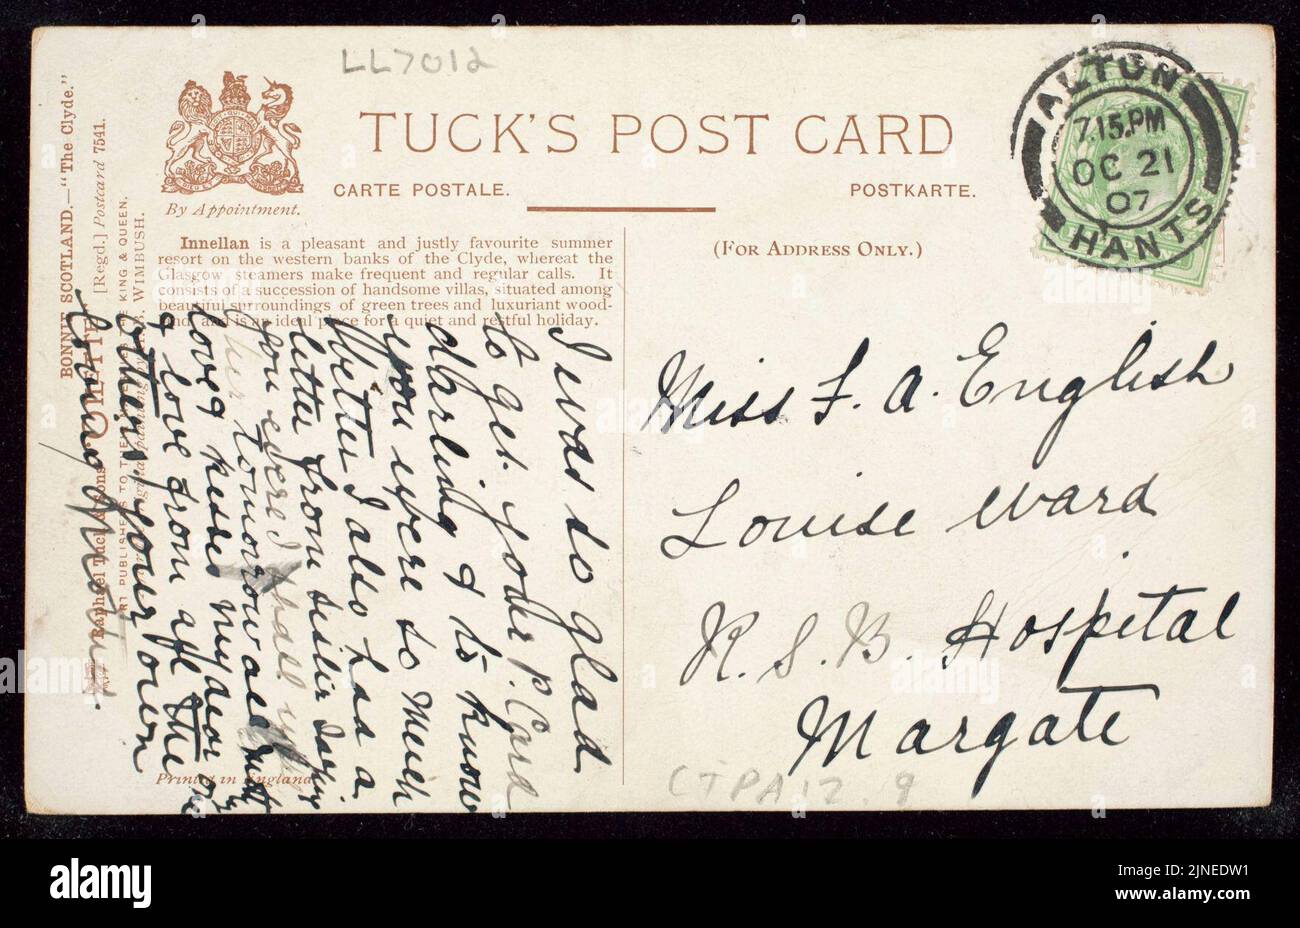 LL7012
TUCK'S POST CARD
CARTE POSTALE.
POSTKARTE.
By Appointment.
(FOR ADDRESS ONLY.)
BONNIE SCOTLAND.—"The Clyde."
[Regd.] Postcard 7541.
Raphael Tuck & Sons
ART PUBLISHERS TO THEIR KING & QUEEN.
WIMBUSH.
Innellan is a pleasant and justly favourite summer
resort on the western banks of the Clyde, whereat the
Glasgow steamers make frequent and regular calls. It
consists of a succession of handsome villas, situated among
beautiful surroundings of green trees and luxuriant wood-
land, and is an ideal place for a quiet and restful holiday.
I was so glad
to get your P. Card
darling & to know
you were so much
better I also had a
letter from sister saying
you were I shall
tomorrow all
love & kisses my dear
& love from all the
others, your own
loving
Printed in England
ALTON
7.15.PM
OC 21
07
HANTS
Miss F. A. English
Louise Ward
R. S. B. Hospital
Margate
CTPA12.9
alamy
Image ID: 2JNEDW1
www.alamy.com